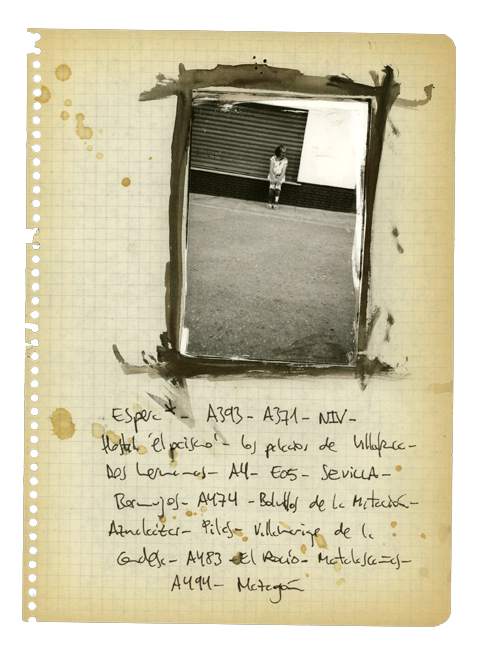 Espera*- A393- A371- NIV-
Hostal 'El paisano'- Los palacios de Villafranca-
Dos hermanas- A4- E05- SevillA-
Bormujos- A474- Bollullos de la Mitación-
Aznalcázar- Pilas- Villamanrique de la
Condesa- A483- El Rocío- Matalascañas-
A494- Mazagón